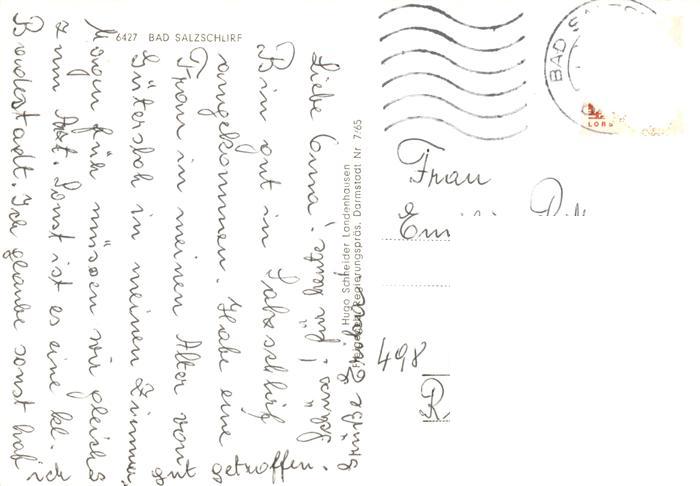 6427 BAD SALZSCHLIRF
Liebe Oma!
Bin gut in Salzschlirf
angekommen. Habe eine
Frau in meinen Alter von
Gütersloh in meinen Zimmer,
gut getroffen.
Morgen früh müssen wir gleichs
zum Arzt. Sonst ist es eine kl.
Badestadt. Ich glaube sonst hab ich
für heute!
Grüße Erika.
Hugo Schneider Landenhausen
Regierungspräs. Darmstadt Nr 7/65
BAD
Frau
498
R